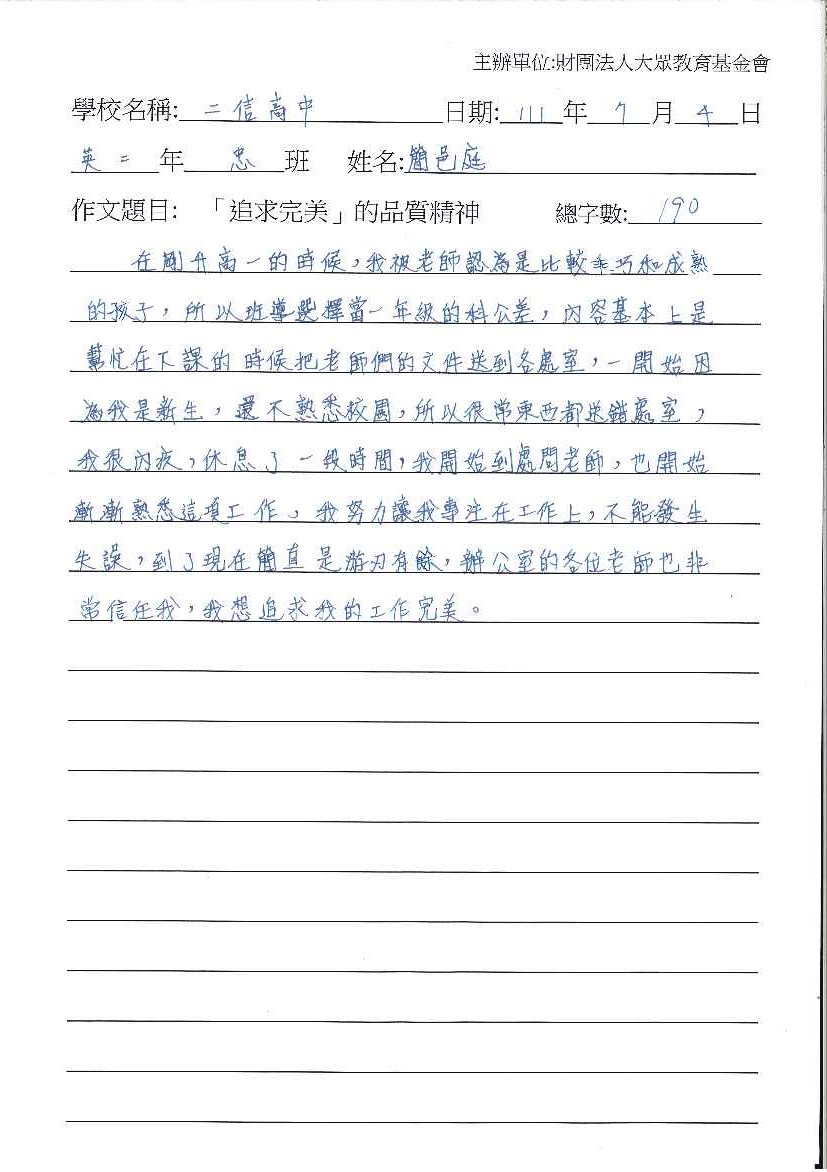 主辦單位:財團法人大眾教育基金會
學校名稱: 二信高中 日期: 111 年 7 月 4 日
英二 年 忠 班 姓名:簡邑庭
作文題目: 「追求完美」的品質精神 總字數: 190
在剛升高一的時候,我被老師認為是比較乖巧和成熟
的孩子,所以班導選擇當一年級的科公差,內容基本上是
幫忙在下課的時候把老師們的文件送到各處室,一開始因
為我是新生,還不熟悉校園,所以很常東西都送錯處室,
我很內疚,休息了一段時間,我開始到處問老師,也開始
漸漸熟悉這項工作、我努力讓我專注在工作上,不能發生
失誤,到了現在簡直是游刃有餘,辦公室的各位老師也非
常信任我,我想追求我的工作完美。